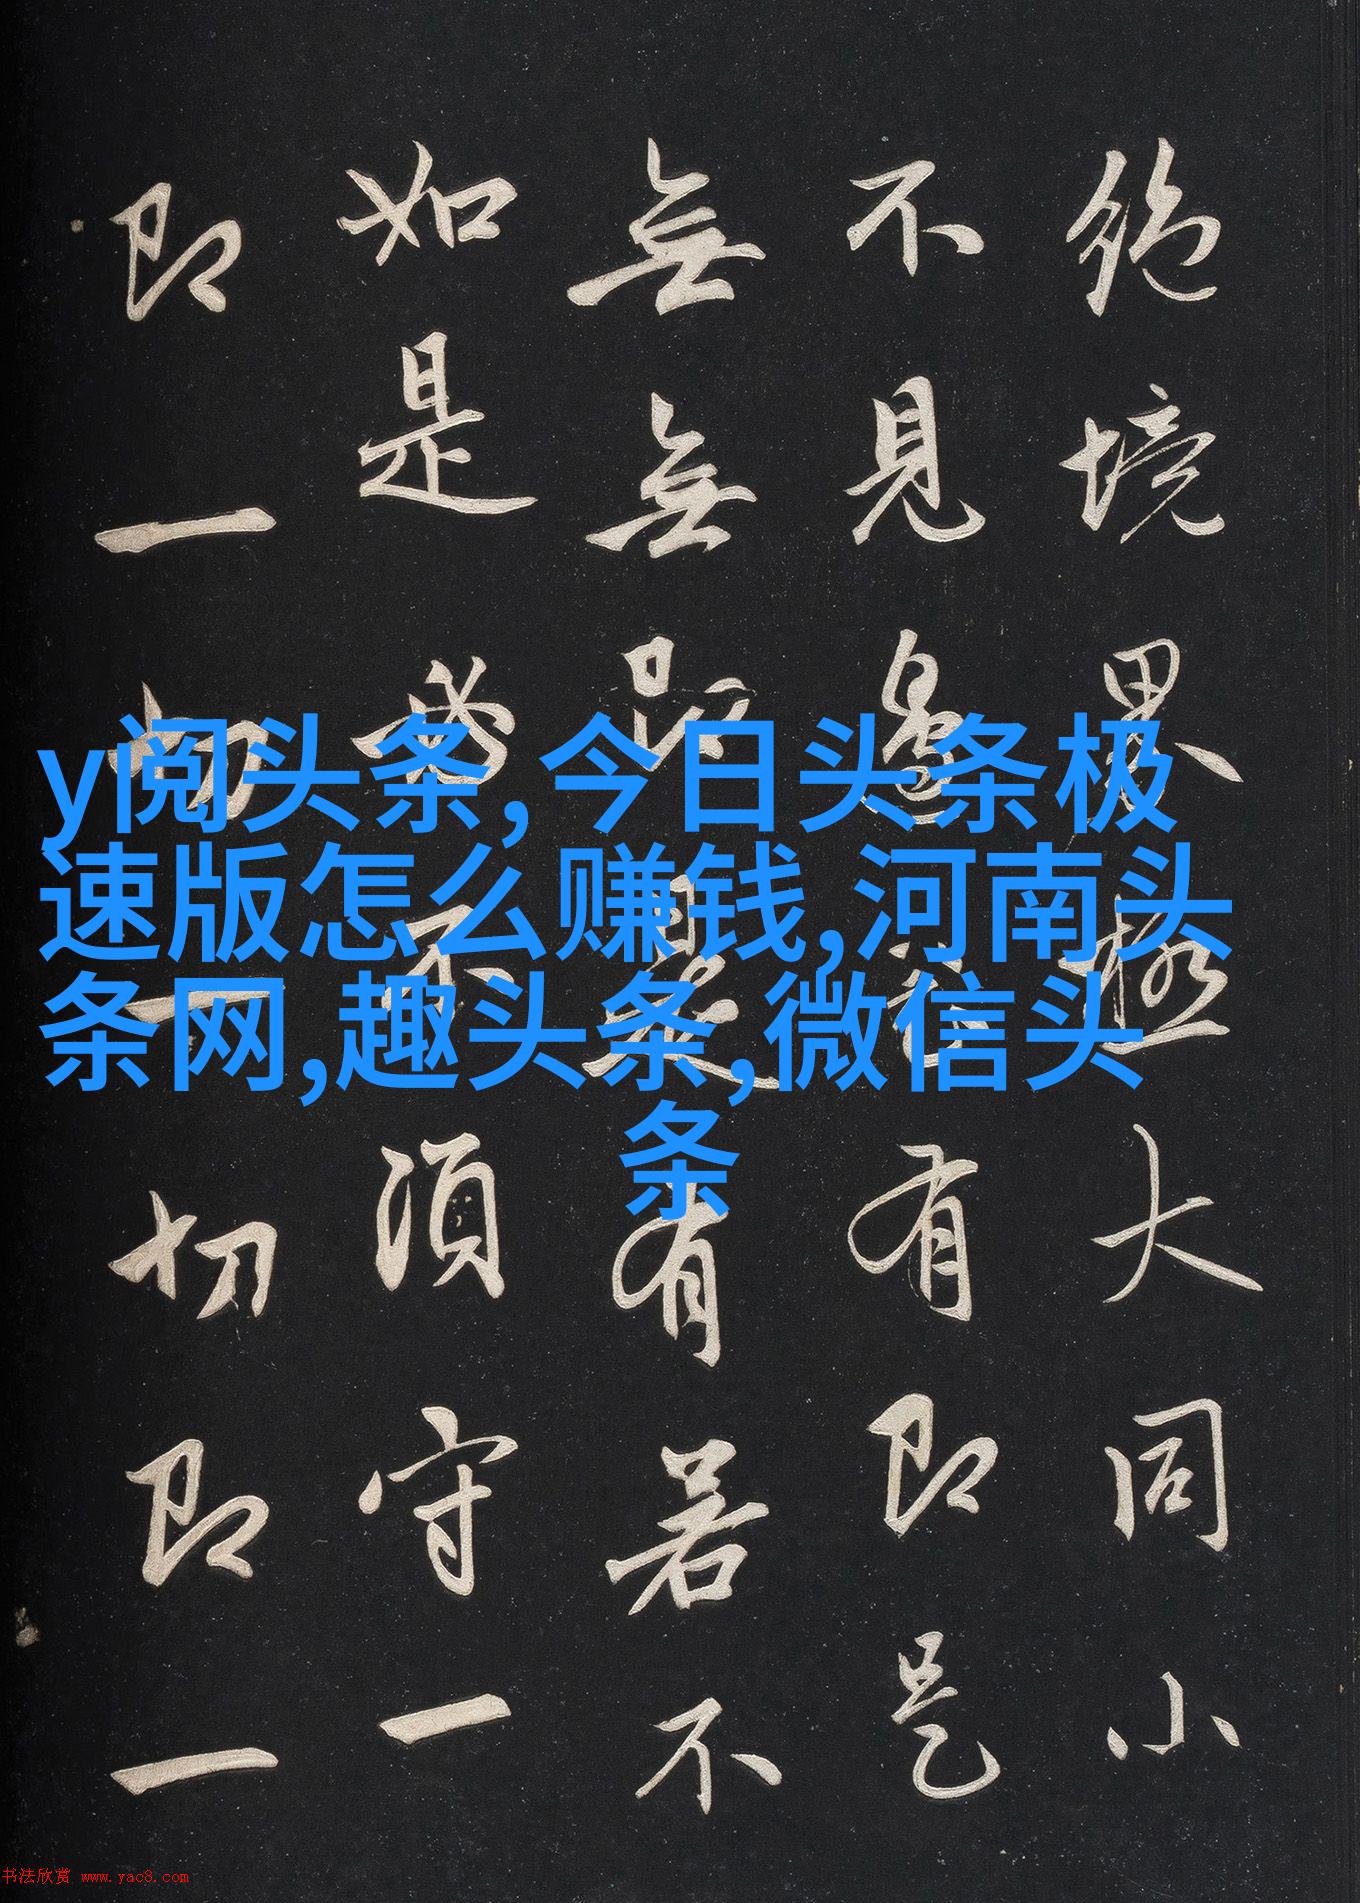 絶境界極大同小
不見邊表有即是
無無即是有若不
如是必不須守一
即一切一切即一
y阅头条,今日头条极
速版怎么赚钱,河南头
条网,趣头条,微信头
条
书法欣赏 www.yac8.com